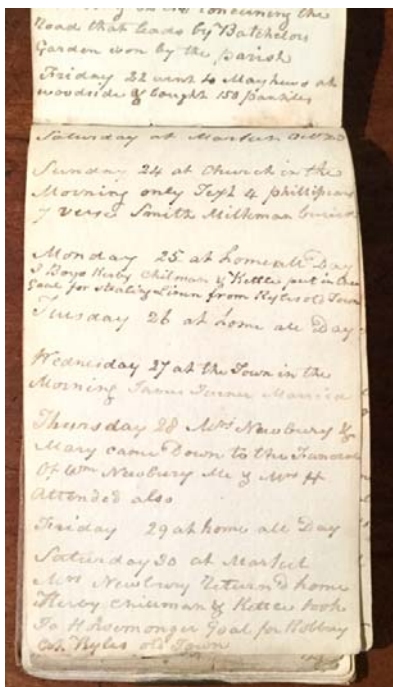 concerning the
Road that leads by Batchelors
Garden won by the parish
Friday 22 went to Mayhews at
woodside & bought 150 pantiles
Saturday at Market Octr 23
Sunday 24 at Church in the
Morning only Text 4 phillipians
7 verse Smith Milkman buried
Monday 25 at home all Day
3 Boys Kerby Chilman & Kettle put in
Goal for stealing Linnen from Ryles old Town
Tuesday 26 at home all Day
Wednesday 27 at the Town in the
Morning James Turner Married
Thursday 28 Mrs Newbury &
Mary came Down to the Funeral
Of Wm Newbury Mr & Mrs H
Attended also
Friday 29 at home all Day
Saturday 30 at Market
Mrs Newbury Return'd home
Kerby Chilman & Kettle took
To Horsemonger Goal for Robbry
at Ryles old Town